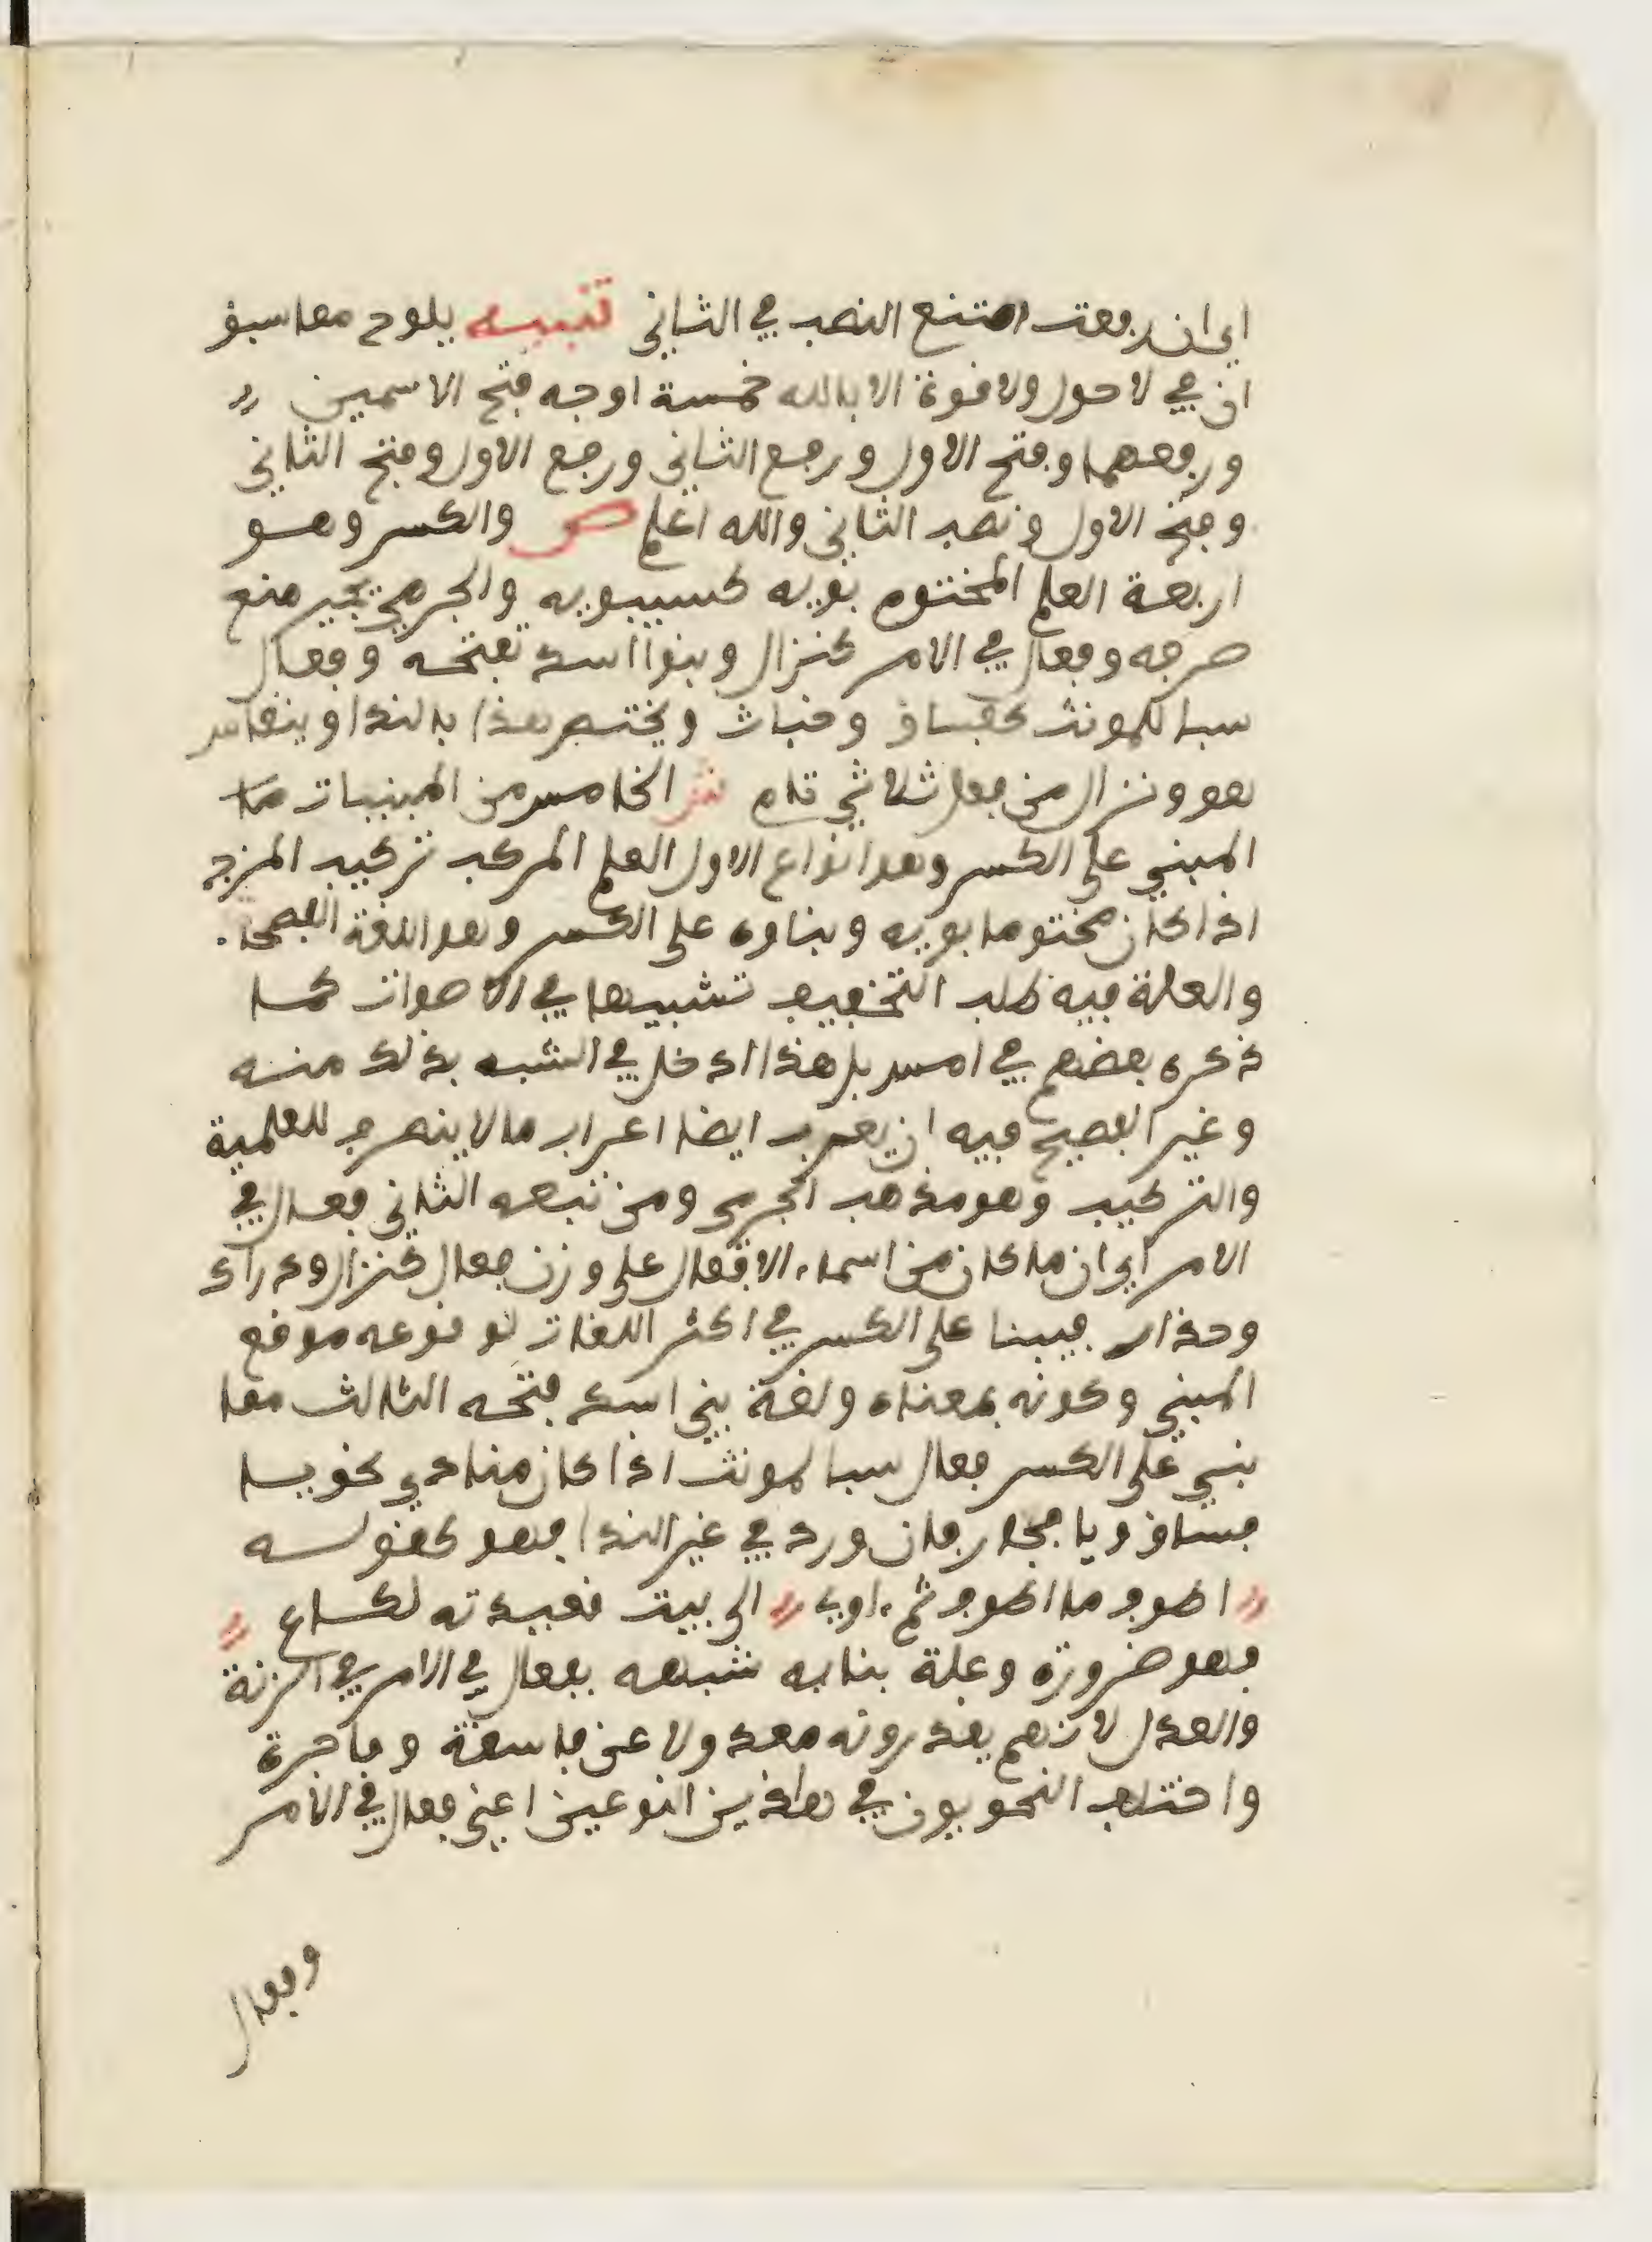 اي ان رفعت امتنع النصب في الثاني تنبيه يلوح مما سبق
ان في لا حول ولا قوة الا بالله خمسة اوجه فتح الاسمين
ورفعهما وفتح الاول ورفع الثاني ورفع الاول وفتح الثاني
وفتح الاول ونصب الثاني والله اعلم ص والكسر وهو
اربعة العلم المختوم بويه كسيبويه والجرمي يجيز منع
صرفه وفعال في الامر كنزال وبنوا اسد تفتحه وفعال
سبا للمونث كفساق وخباث ويختص هذا بالندا وينقاس
هو ونزال من فعل ثلاثي تام ش الخامس من المبنيات
المبني على الكسر وهو انواع الاول العلم المركب تركيب المزج
اذا كان مختوما بويه وبناوه على الكسر وهو اللغة الفصحا
والعلة فيه طلب التخفيف تشبيها في الاصوات كما
ذكره بعضهم في امس بل هذا ادخل في الشبه بذلك منه
وغير الفصيح فيه ان يعرب ايضا اعراب ما لا ينصرف للعلمية
والتركيب وهو مذهب الجرمي ومن تبعه الثاني فعال في
الامر اي ان ما كان من اسماء الافعال على وزن فعال كنزال ودراك
وحذار فيبنا على الكسر في اكثر اللغات لوقوعه موقع
المبني وكونه بمعناه ولغة بني اسد فتحه الثالث مما
بني على الكسر فعال سبا لمونث اذا كان منادي نحو يا
فساق ويا فجار فان ورد في غير الندا فهو كقوله
اطوف ما اطوف ثم ءاوي الى بيت قعيدته لكاع
فهو ضرورة وعلة بنايه شبهه بفعال في الامر في الزنة
والعدل لانهم يقدرونه معدولا عن فاسقة وفاجرة
واختلف النحويون في هاذين النوعين اعني فعال في الامر
وفعال